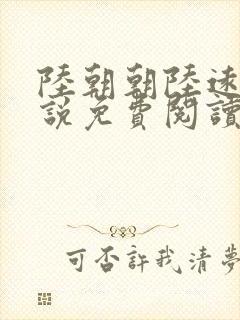 陸朝朝陸遠
說免費閱讀
可否許我清夢